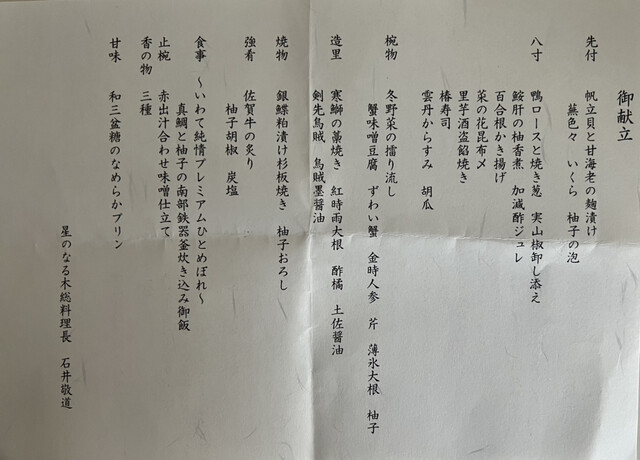 御献立
先付　帆立貝と甘海老の麹漬け
蕪色々　いくら　柚子の泡
八寸　鴨ロースと焼き葱　実山椒卸し添え
鮟肝の柚香煮　加減酢ジュレ
百合根かき揚げ
菜の花昆布〆
里芋酒盗餡焼き
椿寿司
雲丹からすみ　胡瓜
椀物　冬野菜の擂り流し
蟹味噌豆腐　ずわい蟹　金時人参　芹　薄氷大根　柚子
造里　寒鰤の藁焼き　紅時雨大根　酢橘　土佐醤油
剣先烏賊　烏賊墨醤油
焼物　銀鰈粕漬け杉板焼き　柚子おろし
強肴　佐賀牛の炙り
柚子胡椒　炭塩
食事　～いわて純情プレミアムひとめぼれ～
真鯛と柚子の南部鉄器釜炊き込み御飯
止椀　赤出汁合わせ味噌仕立て
香の物　三種
甘味　和三盆糖のなめらかプリン
星のなる木総料理長　石井敬道